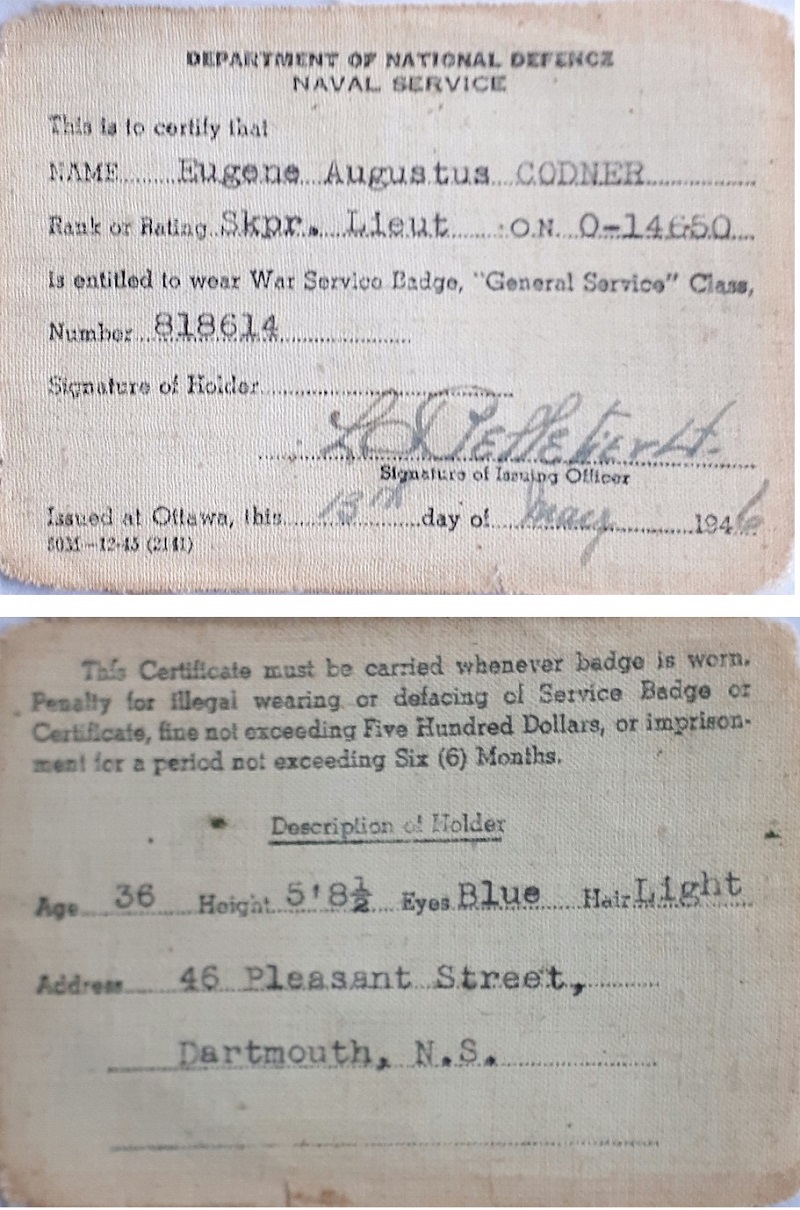 DEPARTMENT OF NATIONAL DEFENCE
NAVAL SERVICE
This is to certify that
NAME Eugene Augustus CODNER
Rank or Rating Skpr. Lieut O.N. O-14650
is entitled to wear War Service Badge, "General Service" Class,
Number 818614
Signature of Holder
Pelletier Lt.
Signature of Issuing Officer
Issued at Ottawa, this 15th day of May 1946
50M-12-45 (2141)
This Certificate must be carried whenever badge is worn.
Penalty for illegal wearing or defacing of Service Badge or
Certificate, fine not exceeding Five Hundred Dollars, or imprison-
ment for a period not exceeding Six (6) Months.
Description of Holder
Age 36 Height 5'8½ Eyes Blue Hair Light
Address 46 Pleasant Street,
Dartmouth, N.S.